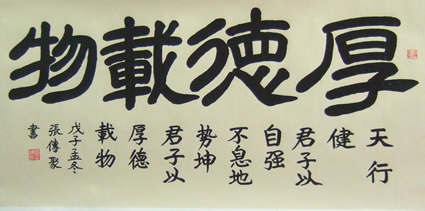 厚德載物
天行
健
君子以
自强
不息地
势坤
君子以
厚德
載物
戊子孟冬
張傳聚
書